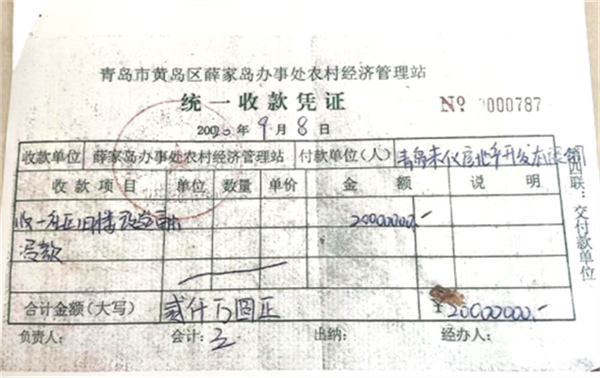 青岛市黄岛区薛家岛办事处农村经济管理站
统一收款凭证
№ 0000787
200 年9月8日
收款单位 薛家岛办事处农村经济管理站 付款单位(人) 青岛来仪房地产开发有限公司
收款项目 单位 数量 单价 金额 说明
收 旧 20000000.-
款
合计金额(大写) 贰仟万圆正 ¥20000000.-
负责人: 会计: 出纳: 经办人:
第四联:交付款单位